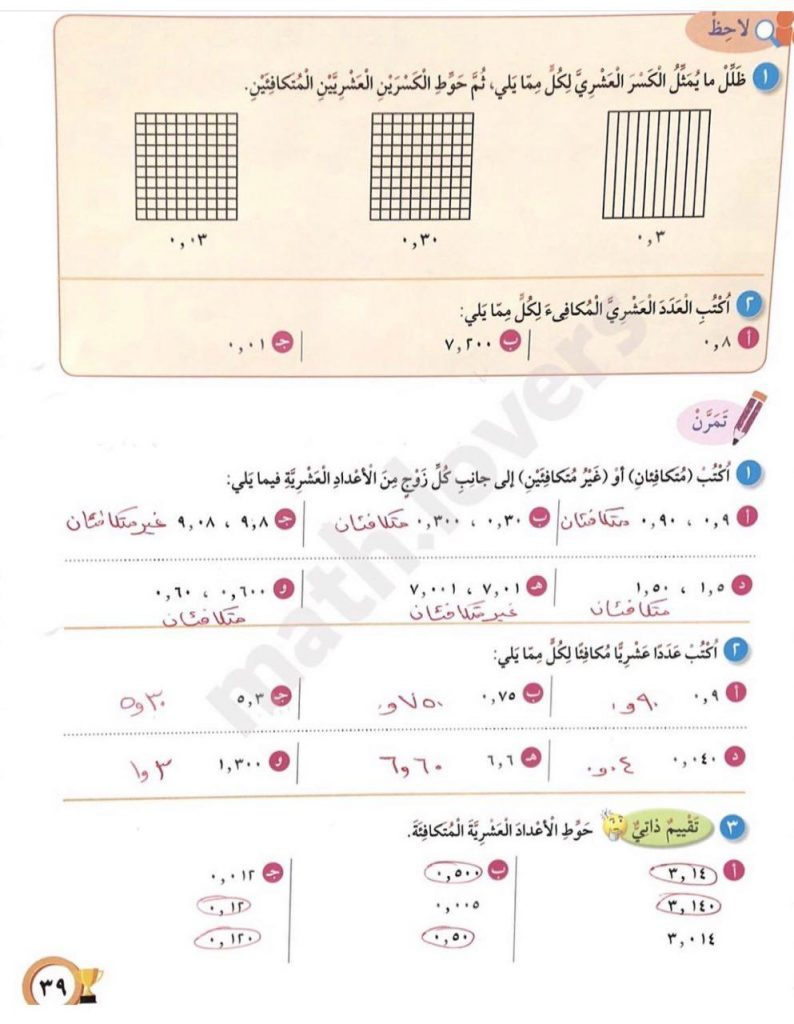 لاحِظْ
١ ظَلِّلْ ما يُمَثِّلُ الْكَسْرَ الْعَشْرِيَّ لِكُلٍّ مِمّا يَلي، ثُمَّ حَوِّطِ الْكَسْرَيْنِ الْعَشْرِيَّيْنِ الْمُتَكافِئَيْنِ.
٠,٣ ٠,٣٠ ٠,٠٣
٢ اُكْتُبِ الْعَدَدَ الْعَشْرِيَّ الْمُكافِىءَ لِكُلٍّ مِمّا يَلي:
أ ٠,٨ ب ٧,٢٠٠ جـ ٠,٠١
تَمَرَّنْ
١ اُكْتُبْ (مُتَكافِئانِ) أَوْ (غَيْرُ مُتَكافِئَيْنِ) إلى جانِبِ كُلِّ زَوْجٍ مِنَ الْأَعْدادِ الْعَشْرِيَّةِ فيما يَلي:
أ ٠,٩ ، ٠,٩٠ متكافئان ب ٠,٣٠ ، ٠,٣٠٠ متكافئان جـ ٩,٨ ، ٩,٠٨ غير متكافئان
د ١,٥ ، ١,٥٠ هـ ٧,٠١ ، ٧,٠٠١ و ٠,٦٠٠ ، ٠,٦٠
متكافئان غير متكافئان متكافئان
٢ اُكْتُبْ عَدَدًا عَشْرِيًّا مُكافِئًا لِكُلٍّ مِمّا يَلي:
أ ٠,٩ ٠,٩٠ ب ٠,٧٥ ٠,٧٥٠ جـ ٥,٣ ٥,٣٠
د ٠,٠٤٠ ٠,٠٤ هـ ٦,٦ ٦,٦٠ و ١,٣٠٠ ١,٣
٣ تَقْييمٌ ذاتِيٌّ حَوِّطِ الْأَعْدادَ الْعَشْرِيَّةَ الْمُتَكافِئَةَ.
أ ٣,١٤ ب ٠,٥٠٠ جـ ٠,٠١٢
٣,١٤٠ ٠,٠٠٥ ٠,١٢
٣,٠١٤ ٠,٥٠ ٠,١٢٠
٣٩
math.lovers